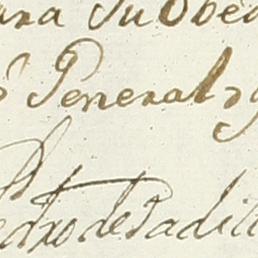 ara Su Obed
General y
edro de Padill